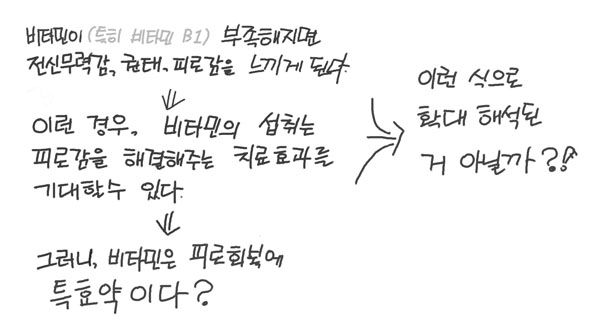 비타민이 (특히 비타민 B1) 부족해지면
전신무력감, 권태, 피로감을 느끼게 된다.
⇓
이런 경우, 비타민의 섭취는
피로감을 해결해주는 치료효과를
기대할수 있다.
⇓
그러니, 비타민은 피로회복에
특효약이다?
이런 식으로
확대 해석된
거 아닐까?!^